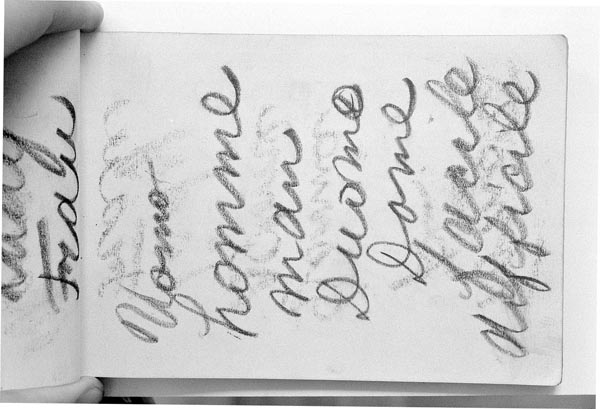 Uomo
homme
man
Duomo
Dome
facile
difficile